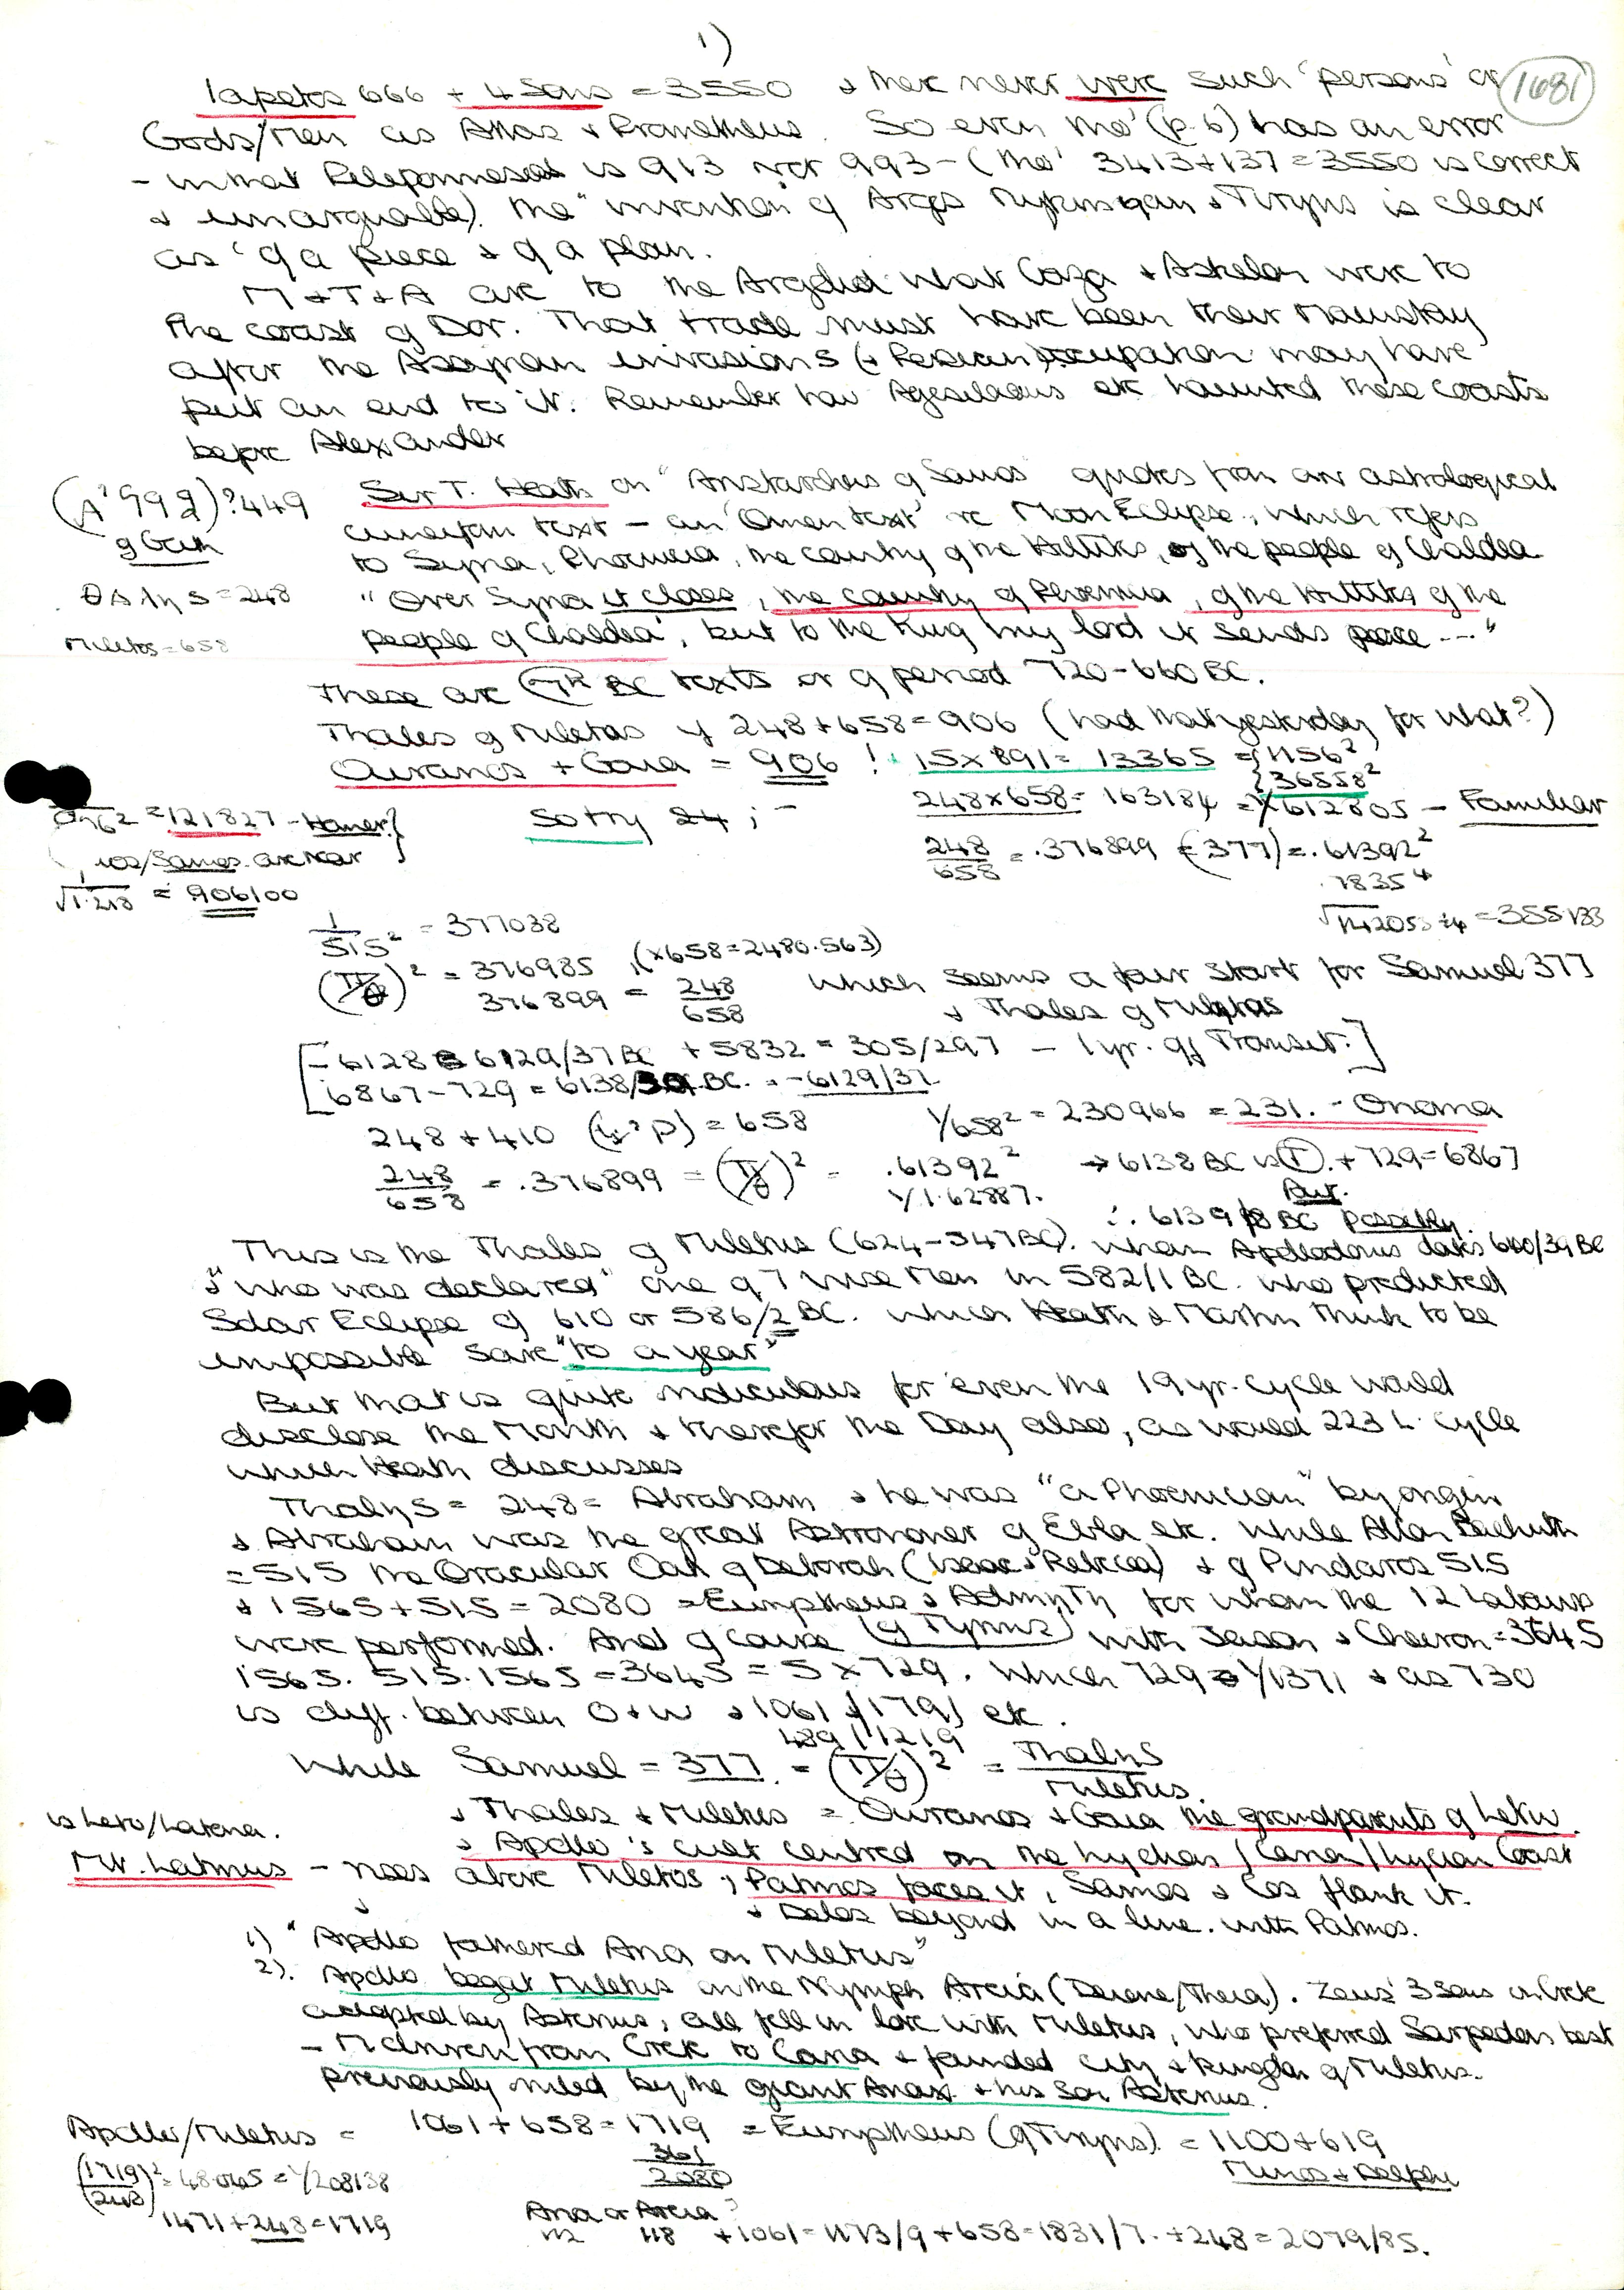 1)
1681
Iapetos 666 + 4 Sons = 3550 & there never were such 'persons' or
Gods/Men as Atlas & Prometheus. So even tho' (p. 6) has an error
- in that Peloponnesos is 913 not 993 - (tho' 3413+137 = 3550 is correct
& unarguable). The "invention" of Argos & Tiryns is clear
as 'of a piece & of a plan.
M + T + A are to the Argolid what Gaza & Askelon were to
the coast of Dor. That trade must have been their mainstay
after the Assyrian invasions (& Persian) occupation may have
put an end to it. Remember how Agesilaous etc haunted these coasts
before Alexander
(A' 99 g)? 449
of Gath
Sir T. Heath on "Aristarchus of Samos" quotes from an astrological
cuneiform text - an 'Omen text' re Moon Eclipse, which refers
to Syria, Phoenicia, the country of the Hittites, of the people of Chaldea
Miletos = 658
"Over Syria it closes, the country of Phoenicia, of the Hittites of the
people of Chaldea, but to the King my lord it sends peace ---"
These are 7th BC texts or of period 720-660 BC.
Thales of Miletos if 248+658 = 906 (had that yesterday for what?)
Ouranos + Gaia = 906 ! 15 x 891 = 13365 = 1156²
36558²
248 x 658 = 163184 = 1/612805 - Familiar
= 121827 - Homer
Samos are near
√1.218 = 906100
Sorry 24 ; -
248/658 = .376899 (= 377) = .61392²
.7835⁴
= 355183
1/515² = 377038
(π/θ)² = 376985 (x658 = 2480.563)
376899 = 248/658 which seems a fair start for Samuel 377
& Thales of Miletos
[-6128 6129/37 BC + 5832 = 305/297 - 1 yr. off Transit.]
6867 - 729 = 6138 BC. -6129/37
248 + 410 = 658 1/658² = 230966 = 231. - Onoma
248/658 = .376899 = (π/θ)² = .61392² → 6138 BC is T. + 729 = 6867
1/1.62887. But.
∴ 6139/8 BC possibly.
This is the Thales of Miletus (624-547 BC). whom Apollodorus dates 640/39 BC
& "who was declared" one of 7 wise Men in 582/1 BC. who predicted
Solar Eclipse of 610 or 586/2 BC. which Heath & Martin think to be
impossible save "to a year"
But that is quite ridiculous for even the 19 yr. cycle would
disclose the Month & therefor the Day also, as would 223 L. cycle
which Heath discusses
Thalys = 248 = Abraham & he was "a Phoenician" by origin
& Abraham was the great Astronomer of Ebla etc. while Allon Bachuth
= 515 the Oracular Oak of Deborah (Isaac & Rebecca) & of Pindaros 515
& 1565 + 515 = 2080 = Eurystheus & for whom the 12 Labours
were performed. And of course (of Tiryns) with Jason & Cheiron = 3645
1565. 515. 1565 = 3645 = 5 x 729. Which 729 = 1/1371 & as 730
is diff. between O + W & 1061 / 1791 etc.
489 / 1219
While Samuel = 377 = (π/θ)² = Thalys/Miletus.
& Thales & Miletus = Ouranos & Gaia the grandparents of Letw.
is Leto/Latona.
& Apollo's cult centred on the Lychian/Carian/Lycian Coast
Mt. Latmus - rises above Miletos ; Patmos faces it, Samos & Cos flank it.
& Delos beyond in a line. with Patmos.
1) "Apollo fathered Aria on Miletus"
2). Apollo begat Miletus on the Nymph Areia (Deione/Theia). Zeus' 3 Sons in Crete
adopted by Asterius, all fell in love with Miletus, who preferred Sarpedon best
- M driven from Crete to Caria & founded city & kingdom of Miletus.
previously ruled by the giant Anax & his son Asterius.
Apollo/Miletus = 1061 + 658 = 1719 = Eurystheus (of Tiryns). = 1100 + 619
361
2080
Minos & Delphi
(1719/248)² = 48.045 = 1/208138
1471 + 248 = 1719
Aria or Areia?
112 118 + 1061 = 1173/9 + 658 = 1831/7. + 248 = 2079/85.